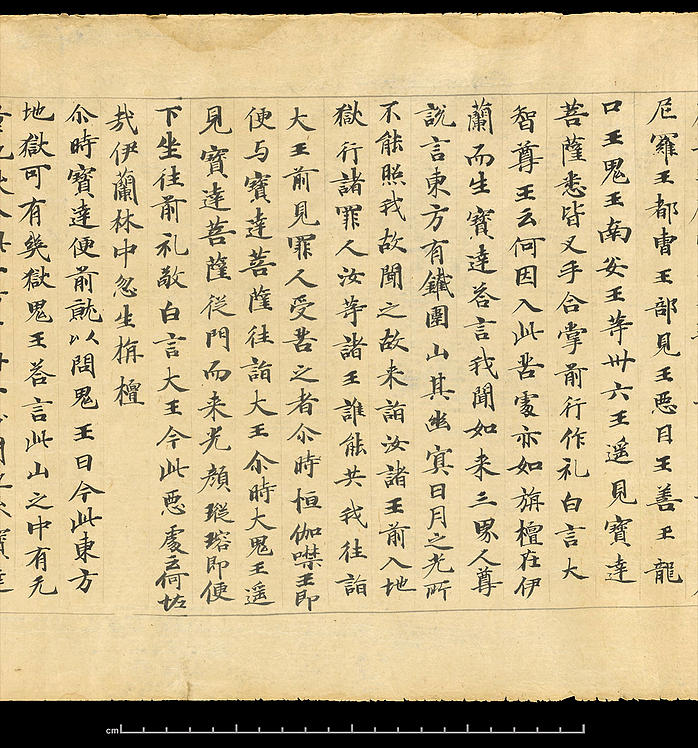 尼羅王都曹王部見王惡目王善王龍
口王鬼王南安王䓁卅六王遥見寶達
菩薩悉皆叉手合掌前行作礼白言大
智尊王云何因入此苦處亦如旃檀在伊
蘭而生寶達荅言我聞如来三界人尊
說言東方有鐵圍山其幽冥日月之光所
不能照我故聞之故来詣汝諸王前入地
獄行諸罪人汝䓁諸王誰能共我往詣
大王前見罪人受苦之者尒時恒伽噤王即
便与寶達菩薩往詣大王尒時大鬼王遥
見寶達菩薩從門而来光顏璀瑢即便
下坐往前礼敬白言大王今此惡處云何
哉伊蘭林中忽生栴檀
尒時寶達便前就以問鬼王曰今此東方
地獄可有幾獄鬼王荅言此山之中有无